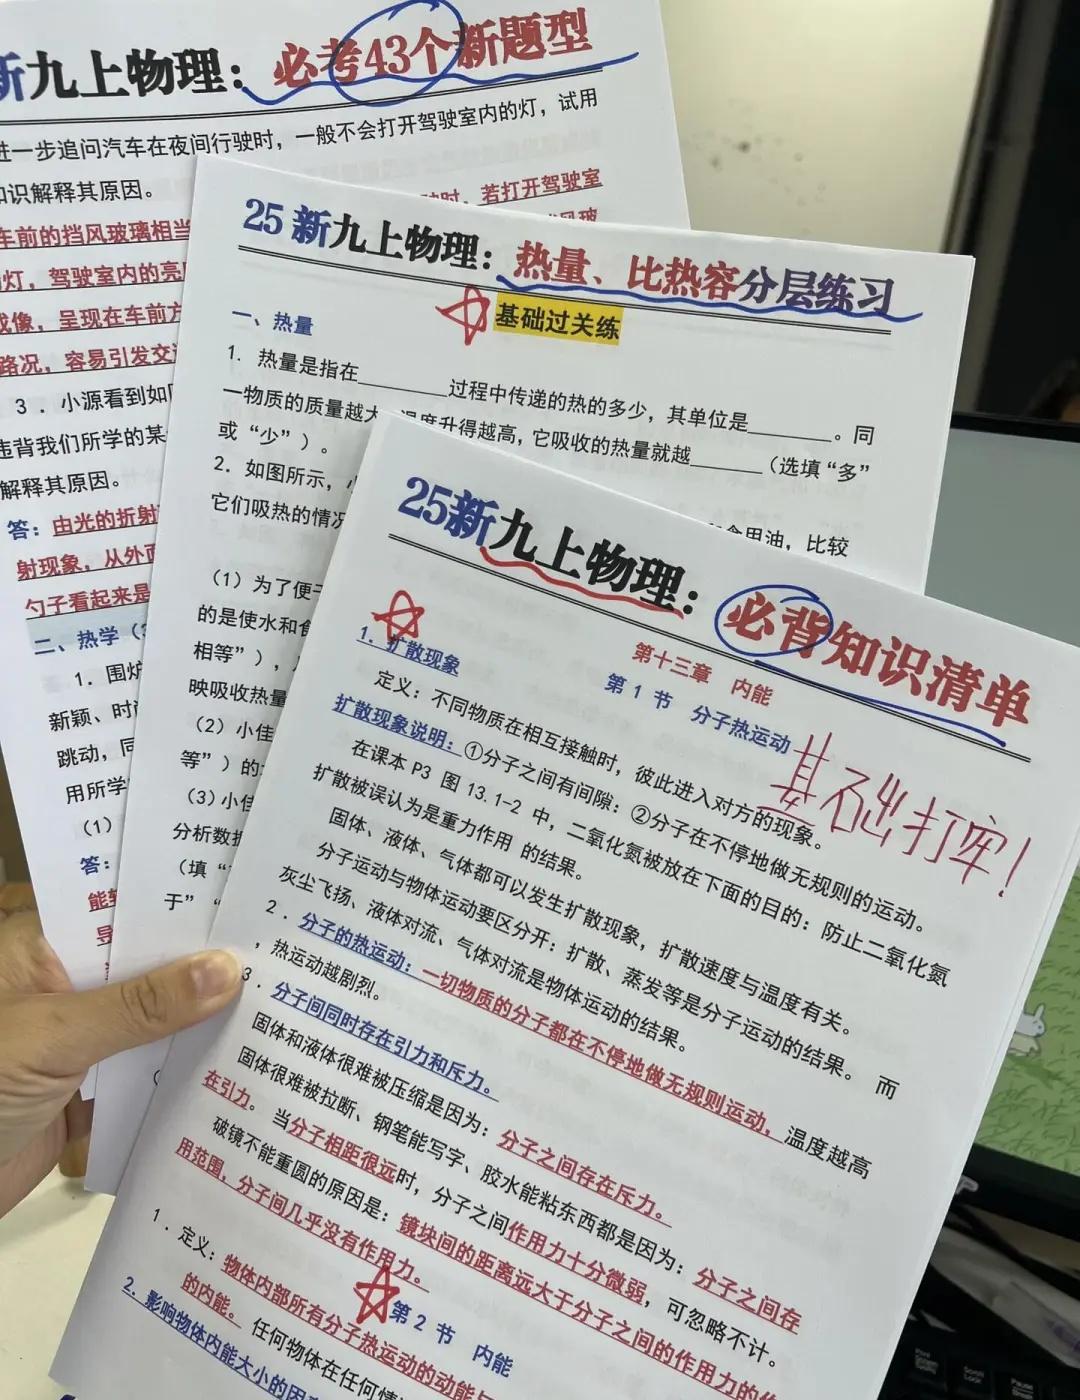 新九上物理：必考43个新题型
进一步追问汽车在夜间行驶时，一般不会打开驾驶室内的灯，试用
识解释其原因。
时，若打开驾驶室
车前的挡风玻璃相当
灯，驾驶室内的亮
成像，呈现在车前方
路况，容易引发交
3．小源看到如
违背我们所学的某
解释其原因。
答：由光的折射
射现象，从外面
勺子看起来是
二、热学
1．围炉
新颖、时尚
跳动，同
用所学
（1）
答：
能转
25新九上物理：热量、比热容分层练习
基础过关练
一、热量
1．热量是指在______过程中传递的热的多少，其单位是______。同
一物质的质量越大，温度升得越高，它吸收的热量就越______（选填“多”
或“少”）。
2．如图所示，
食用油，比较
它们吸热的情况
（1）为了便于
的是使水和食
相等”），
映吸收热量
（2）小佳
等”）的
（3）小佳
分析数据
（填“
于”“
25新九上物理：必背知识清单
第十三章 内能
第1节 分子热运动
基础打牢！
1．扩散现象
定义：不同物质在相互接触时，彼此进入对方的现象。
扩散现象说明：①分子之间有间隙；②分子在不停地做无规则的运动。
在课本P3 图 13.1-2 中，二氧化氮被放在下面的目的：防止二氧化氮
扩散被误认为是重力作用 的结果。
固体、液体、气体都可以发生扩散现象，扩散速度与温度有关。
分子运动与物体运动要区分开：扩散、蒸发等是分子运动的结果。而
灰尘飞扬、液体对流、气体对流是物体运动的结果。
2．分子的热运动：一切物质的分子都在不停地做无规则运动，温度越高
，热运动越剧烈。
3．分子间同时存在引力和斥力。
固体和液体很难被压缩是因为：分子之间存在斥力。
固体很难被拉断、钢笔能写字、胶水能粘东西都是因为：分子之间存
在引力。当分子相距很远时，分子之间作用力十分微弱，可忽略不计。
破镜不能重圆的原因是：镜块间的距离远大于分子之间的作用力的作
用范围，分子间几乎没有作用力。
第2节 内能
1．定义：物体内部所有分子热运动的动能与
的内能。任何物体在任何情
2．影响物体内能大小的因